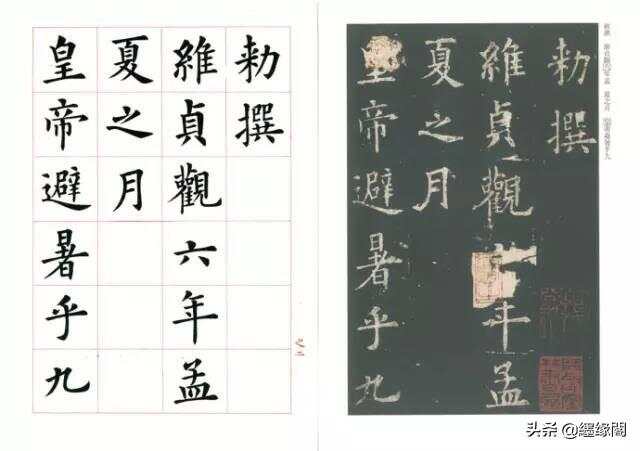 勅撰
維貞觀六年孟
夏之月
皇帝避暑乎九
之二
勅撰
維貞觀年孟
夏之月
皇帝避暑乎九
头条 @缘閣